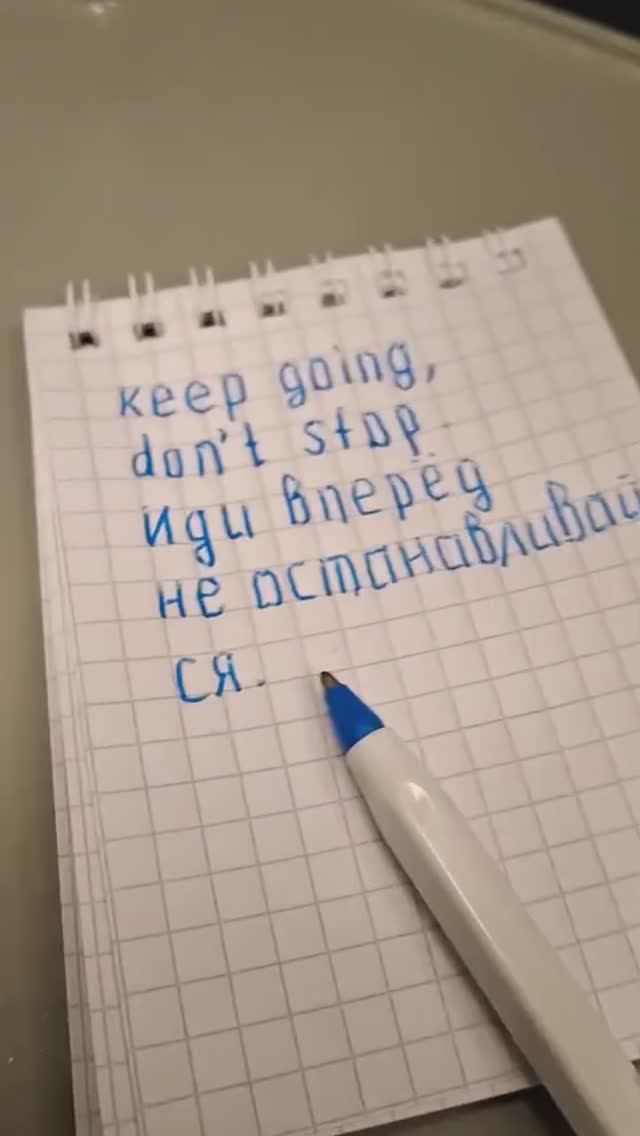 keep going,
don't stop.
иди вперёд
не останавливай
ся.